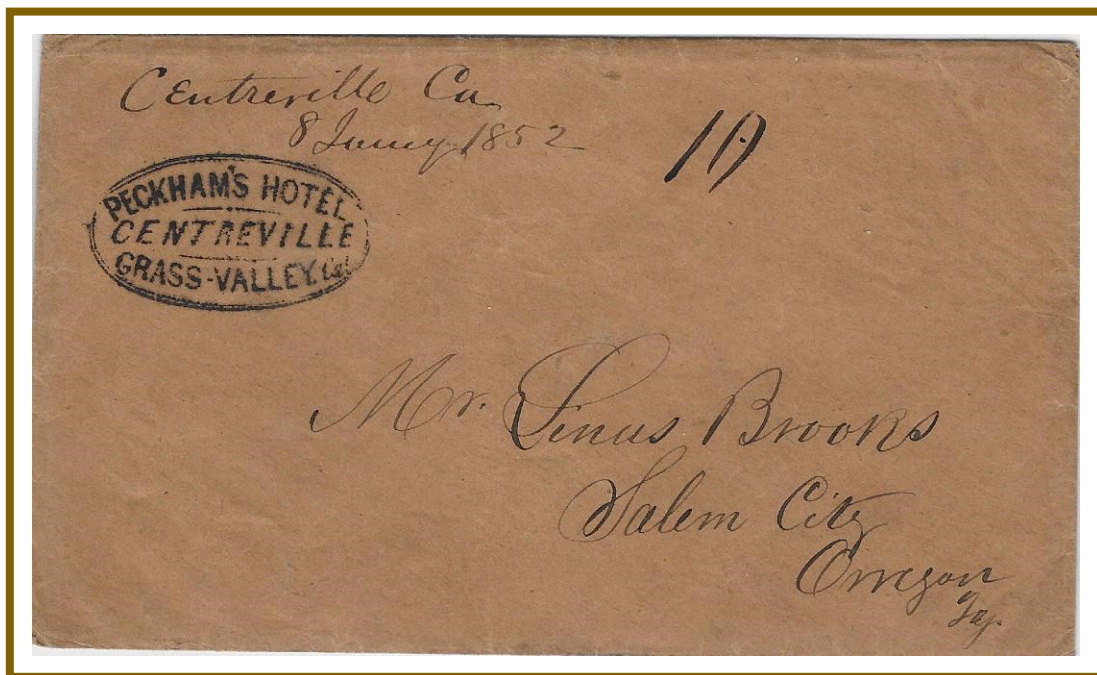 Centreville Ca
8 Jany 1852
10
PECKHAM'S HOTEL
CENTREVILLE
GRASS-VALLEY. Cal
Mr. Linus Brooks
Salem City
Orregon